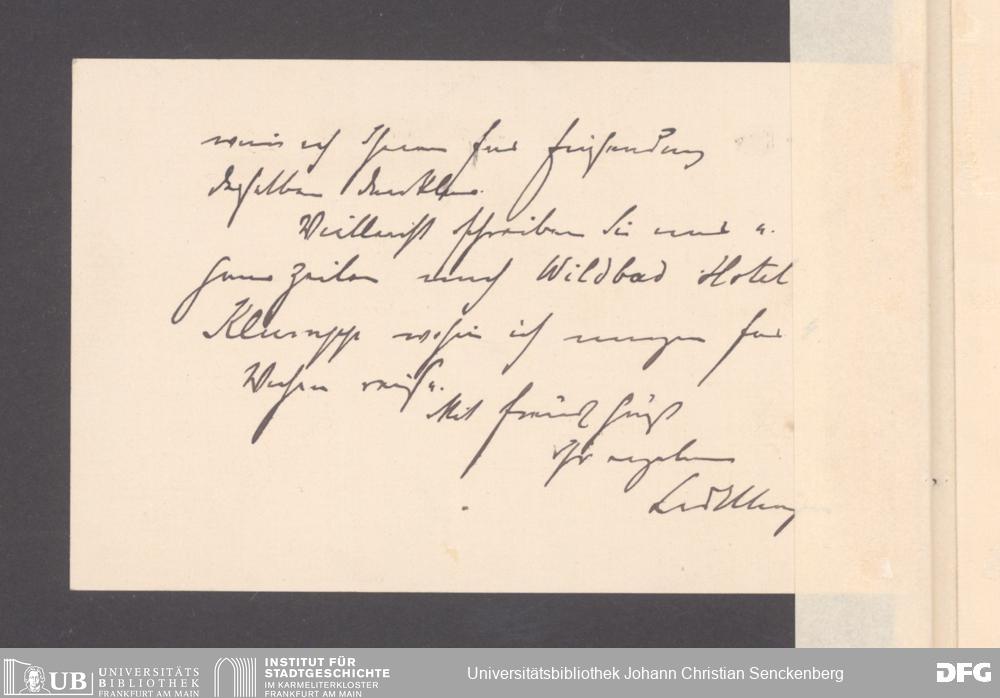 ich Ihnen für Zusendung
desselben dankbar.
Vielleicht schreiben Sie mir
Zeilen nach Wildbad Hotel
Klumpp wohin ich morgen für
Wochen reise.
Mit freundl Gruß
Ihr ergebener
UB UNIVERSITÄTS
BIBLIOTHEK
FRANKFURT AM MAIN
INSTITUT FÜR
STADTGESCHICHTE
IM KARMELITERKLOSTER
FRANKFURT AM MAIN
Universitätsbibliothek Johann Christian Senckenberg
DFG